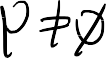 P ≠ ∅